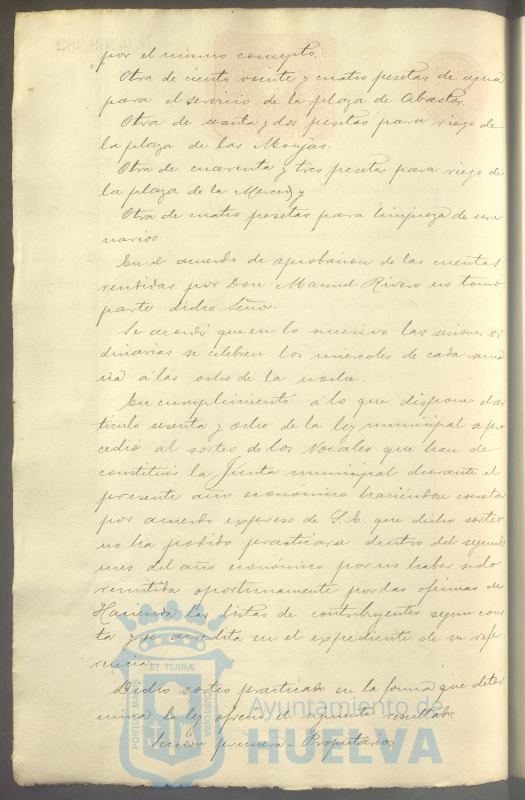 por el mismo concepto.
Otra de ciento veinte y cuatro pesetas de agua
para el servicio de la plaza de Abastos.
Otra de sesenta y dos pesetas para riego de
la plaza de las Monjas.
Otra de cuarenta y tres pesetas para riego de
la plaza de la Merced y
Otra de cuatro pesetas para limpieza de uri
narios
En el acuerdo de aprobacion de las cuentas
rendidas por Don Manuel Rivero no tomó
parte dicho Señor.
Se acordó que en lo sucesivo las sesiones or
dinarias se celebren los miercoles de cada sema
na á las ocho de la noche.
En cumplimiento á lo que dispone el ar
ticulo sesenta y ocho de la ley municipal se pro
cedió al sorteo de los Vocales que han de
constituir la Junta municipal durante el
presente año económico haciendose constar
por acuerdo expreso de S.E. que dicho sorteo
no ha podido practicarse dentro del segundo
mes del año económico por no haber sido
remitida oportunamente por las oficinas de
Hacienda las listas de contribuyentes segun cons
ta y se acredita en el expediente de su refe
rencia.
Dicho sorteo practicado en la forma que deter
mina la ley ofreció el siguiente resultado.
Seccion primera - Propietarios
PORTUS MARIS ET TERRÆ CUSTODIA
Ayuntamiento de
HUELVA